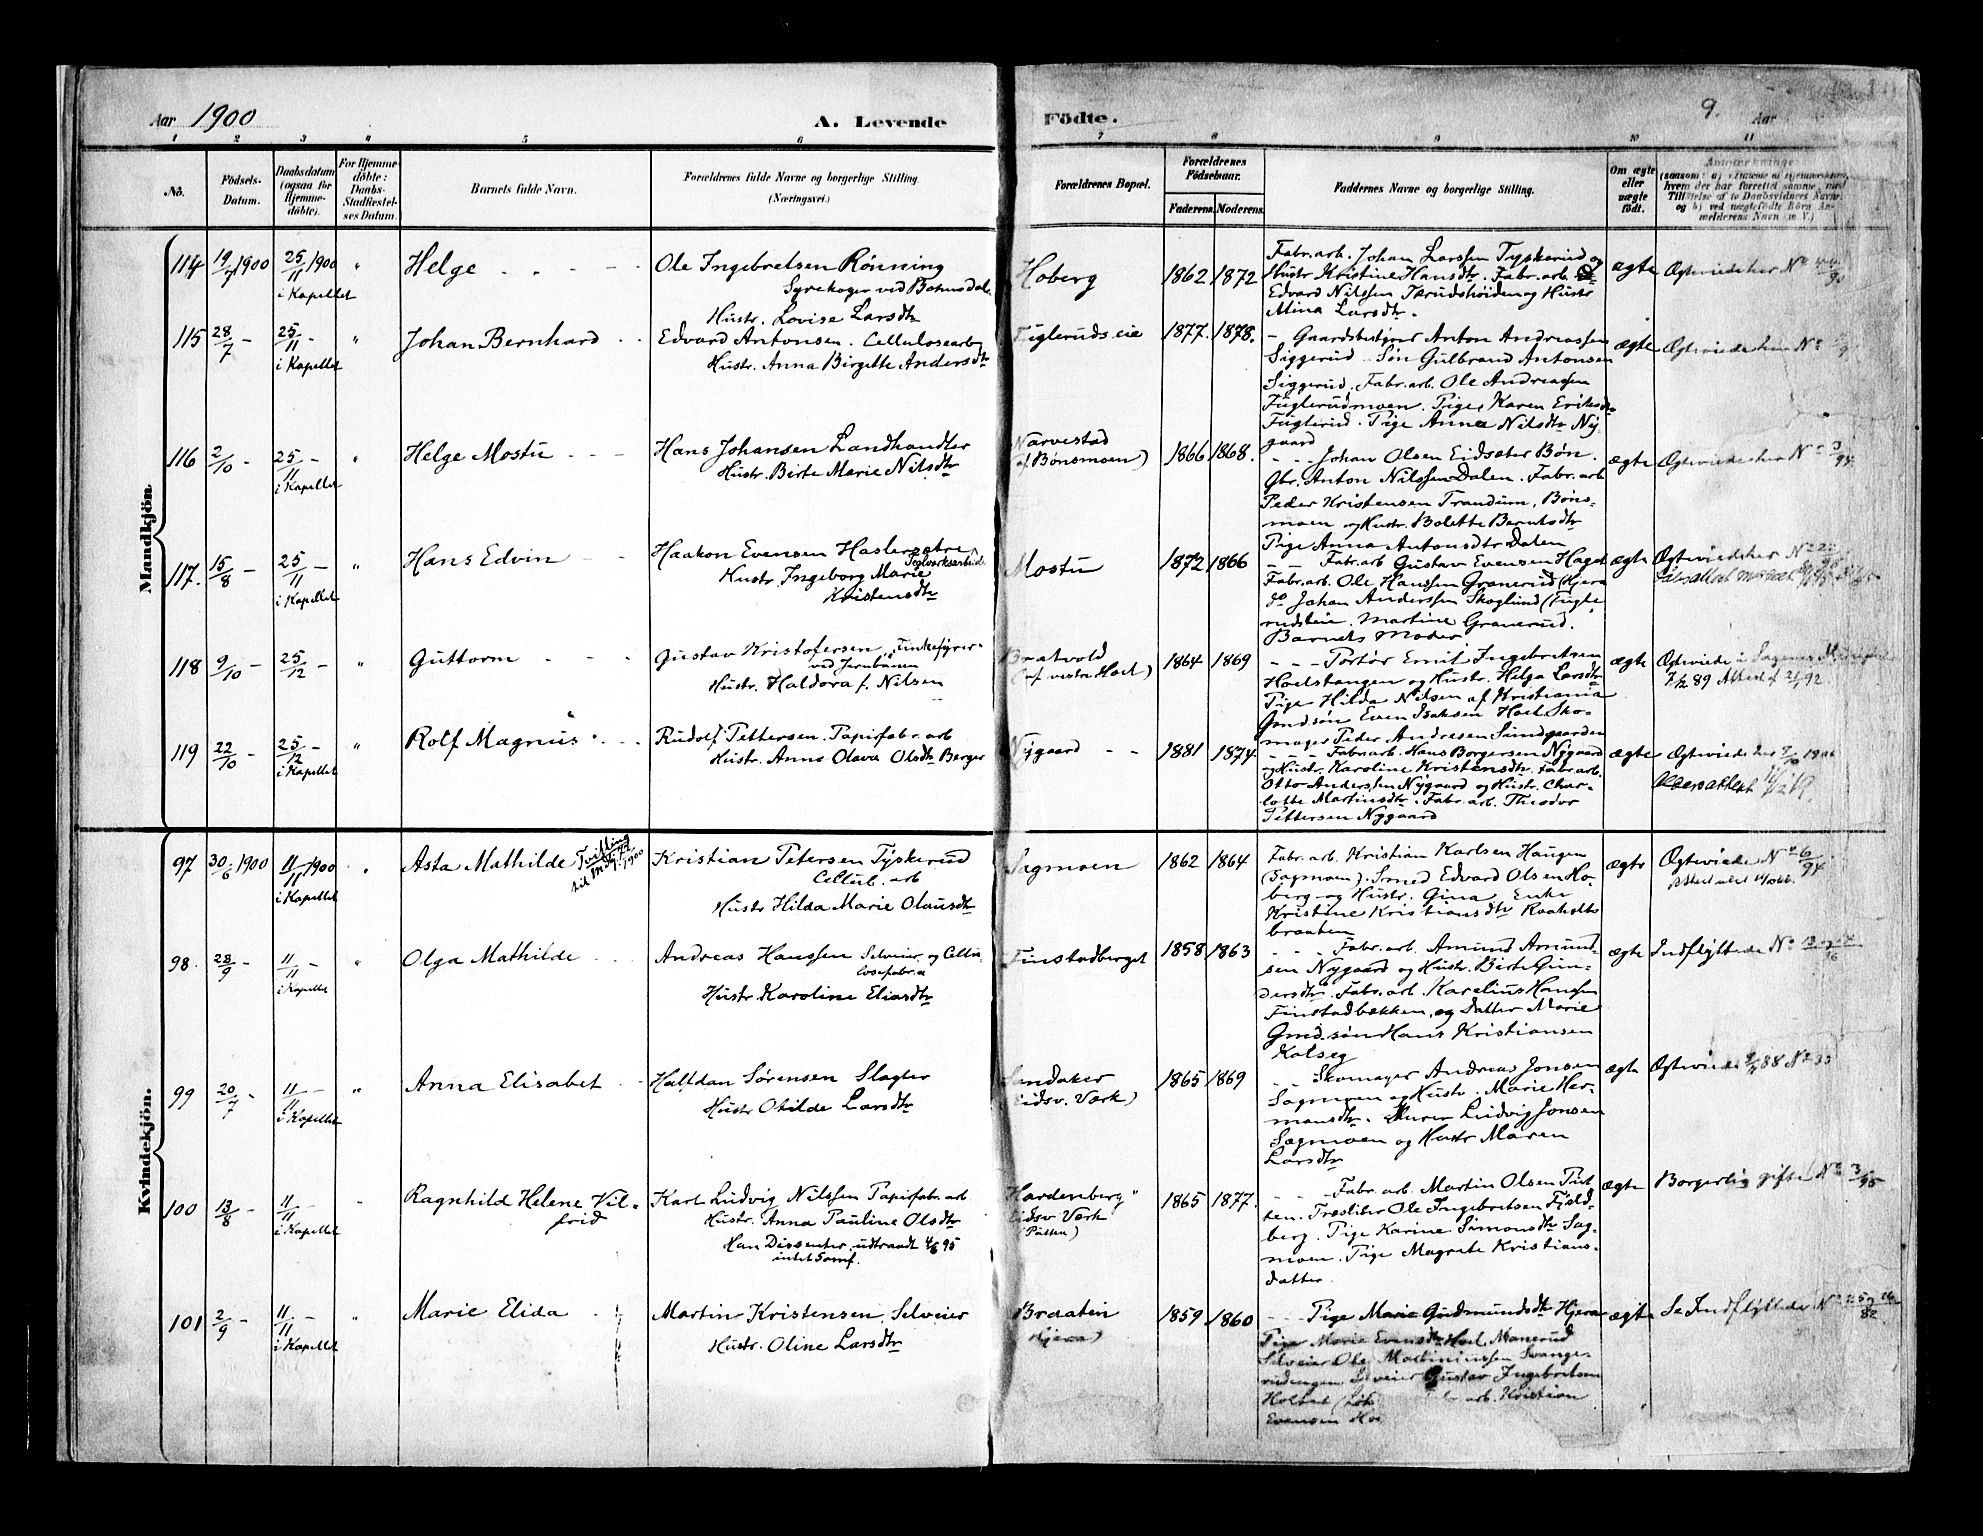 Aar 1900
A. Levende
Födte.
9.
Aar
1 2 3 4 5 6 7 8 9 10 11
Nò.
Födsels-
Datum.
Daabsdatum
(ogsaa for
Hjemme-
döbte).
For Hjemme-
döbte:
Daabs-
Stadfæstel-
ses Datum.
Barnets fulde Navn.
Forældrenes fulde Navne og borgerlige Stilling.
(Næringsvei.)
Forældrenes Bopæl.
Forældrenes
Födselsaar.
Faderens. Moderens.
Faddernes Navne og borgerlige Stilling.
Om ægte
eller
uægte
födt.
Anmærkninger
hvem der har forrettet samme, med
Tilföielse af to Daabsvidners Navne,
og b) ved uægtefödte Börn An-
melderens Navn (m. V.)
Mandkjön.
114 19/7 1900 25/11 1900 " Helge
i Kapellet
Ole Ingebretsen Rönning
Syrekoger ved Bohnsdal.
Hustr. Lovise Larsdtr
Hoberg 1862 1872
Fabr.arb. Johan Larssen Tyskerud og
Hustr Kristine Hansdtr. Fabr.arb.
Edvard Nilssen Tærudshöiden og Hustr
Mina Larsdtr.
ægte Ægteviede her No
115 28/7 - 25/11 - " Johan Bernhard
i Kapellet
Edvard Antonsen. Cellulosearb
Hustr. Anna Birgitte Andersdtr
Fuglerudseie 1877. 1878.
- Gaardsbestyrer Anton Andreassen
Siggerud - Sön Gulbrand Antonsen
Siggerud. Fabr.arb. Ole Andreasen
Fuglerudmoen. Pige Karen Eriksdtr
Fuglerud. Pige Anna Nilsdtr Ny-
gaard
ægte Ægteviede her No
116 2/10 - 25/11 - " Helge Mostu
i Kapellet
Hans Johansen Landhandler
Hustr. Birte Marie Nilsdtr
Narvestad
af Bönsmoen) 1866 1868.
- - - Johan Olsen Eidsæter Bön.
Gbr. Anton Nilssen Dalen. Fabr.arb
Peder Kristensen Trandum, Böns-
moen og Hustr. Bolette Berntsdtr
Pige Anna Antonsdtr Dalen
ægte Ægteviede her No 3/94
117. 15/8 - 25/11 - " Hans Edvin
i Kapellet
Haakon Evensen Haslersætre
Teglværksarbeid.
Hustr Ingeborg Marie
Kristensdtr
Mostu 1872 1866
- - Fabr.arb Gustav Evensen Haget
Fabr.arb. Ole Hanssen Granerud (Hjera
do Johan Anderssen Skoglund (Fugle
rudseie. Martine Granerud.
Barnets Moder
ægte Ægteviede her No
118 9/10 - 25/12 - " Guttorm
Gustav Kristofersen, Linkefyrer
ved Jernbanen
Hustr. Haldora f. Nilsen
Bratvold
(af vestre Hoel) 1864 1869
- - - Portör Emil Ingebretsen
Hoelstangen og Hustr. Helga Larsdtr
Pige Hilda Nilsen af Kristiania
Gmdsön Even Isaksen Hoel. Sko-
mager Peder Andresen Sundgaarden
ægte Ægteviede i Sagenes Menighed
7/12 89 Attest
119 22/10 - 25/12 - " Rolf Magnus
i Kapellet
Rudolf Pettersen. Papirfabr.arb
Hustr. Anna Olava Olsdtr Berger
Nygaard - - 1881 1874
- - - Fabr.arb. Hans Borgersen Nygaard
og Hustr. Karoline Kristensdtr. Fabr.arb.
Otto Anderssen Nygaard og Hustr. Char-
lotte Martinsdtr. Fabr.arb. Theodor
Pettersen Nygaard
ægte Ægteviede her 7/10 1900
Kvindekjön.
97 30/6 1900 11/11 1900 " Asta Mathilde Tvilling
i Kapellet
Kristian Petersen Tyskerud
Cellul. arb
Hustr Hilda Marie Olausdtr
Sagmoen 1862 1864
Fabr.arb. Kristian Karlsen Haugen
(Sagmoen). Smed Edvard Olsen Ho-
berg og Hustr. Gina. Enke
Kristine Kristiansdtr Raaholts
braaten
ægte Ægteviede No 6/94
98. 28/9 - 11/11 - " Olga Mathilde
i Kapelle
Andreas Hanssen Selveier og Cellu-
losefabr.a
Hustr Karoline Eliasdtr
Finstadberget 1858 1863
- - - Fabr.arb. Amund Amund-
sen Nygaard og Hustr. Birte Gun-
dersdtr. Fabr.arb. Karelius Hansen
Finstadbækken, og Datter Marie
Gmd.sön Hans Kristiansen
Kolseg
ægte Indflyttede No
99 20/7 - 11/11 - " Anna Elisabet
i Kapellet
Halfdan Sörensen Slagter
Hustr Otilde Larsdtr
Sandaker
Eidsv. Værk) 1865 1869
- - Skomager Andreas Jonsen
Sagmoen og Hustr. Marie Her-
mansdtr. Murer Ludvig Jonsen
Sagmoen og Hustr Maren
Larsdtr
ægte Ægteviede 88 No 33
100 13/8 - 11/11 - " Ragnhild Helene Vil-
frid
i Kapellet
Karl Ludvig Nilssen Papirfabr.arb
Hustr. Anna Pauline Olsdtr
Han Dissenter, udtraadt 4/6 95
intet Samf.
Hardenberg"
Eidsv Værk 1865 1877.
- - - Fabr.arb. Martin Olsen Put
ten. Træsliber Ole Ingebretsen Fjeld-
berg. Pige Karine Simonsdtr Sag-
moen. Pige Magrete Kristians-
datter.
ægte Borgerlig gifte No 3/95
101 2/9 - 11/11 - Marie Elida
i Kapellet
Martin Kristensen, Selveier
Hustr. Oline Larsdtr
Braaten
Hjera) 1859 1860
- - - Pige Marie Gudmundsdtr Hjera
Pige Marie Evensdtr Hoel Manerud
Selveier Ole Martiniussen Svange-
rudengen Selveier Gustav Ingebretsen
Holtet arb. Kristian
Evensen
ægte Se Indflyttede No